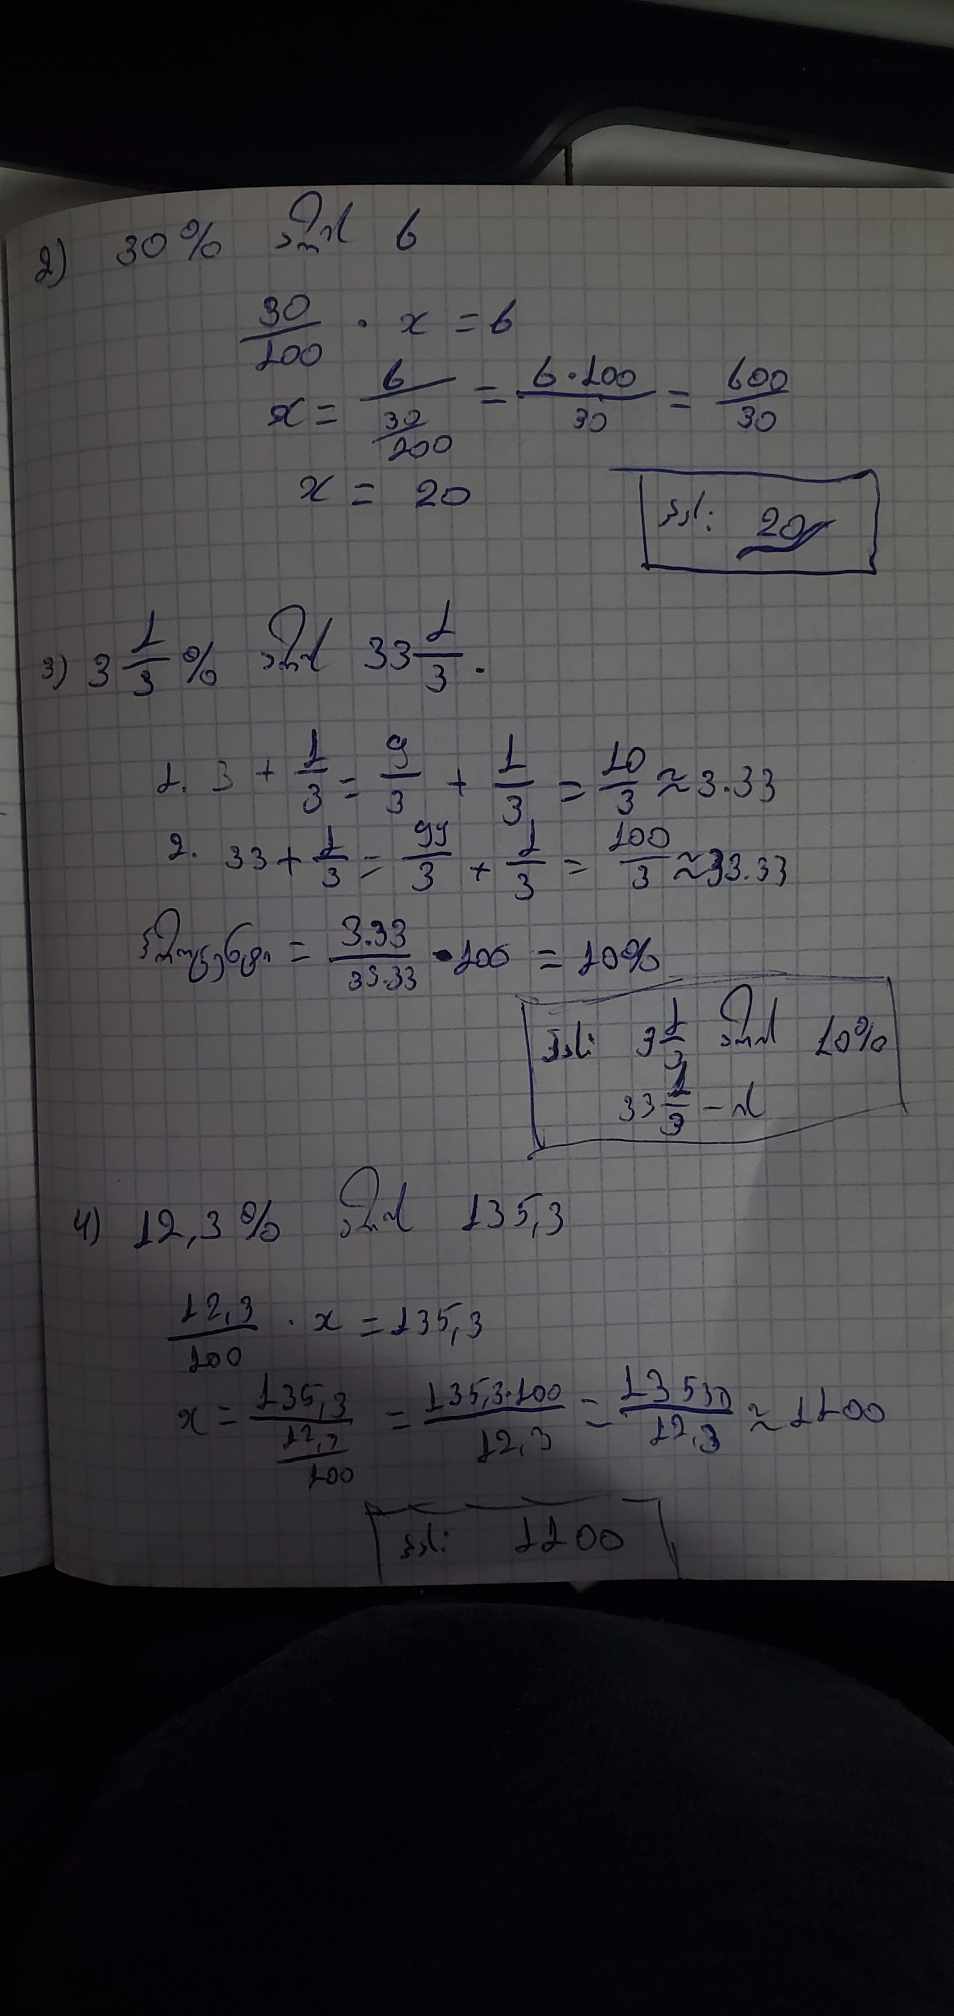 2) 30% არის 6
30/100 · x = 6
x = 6/(30/100) = 6·100/30 = 600/30
x = 20
პას: 20
3) 3 1/3 % არის 33 1/3.
1. 3 + 1/3 = 9/3 + 1/3 = 10/3 ≈ 3.33
2. 33 + 1/3 = 99/3 + 1/3 = 100/3 ≈ 33.33
პროცენტი = 3.33/33.33 · 100 = 10%
პას: 3 1/3 არის 10%
33 1/3 - ის
4) 12,3% არის 135,3
12,3/100 · x = 135,3
x = 135,3/(12,3/100) = 135,3·100/12,3 = 13530/12,3 ≈ 1100
პას: 1100